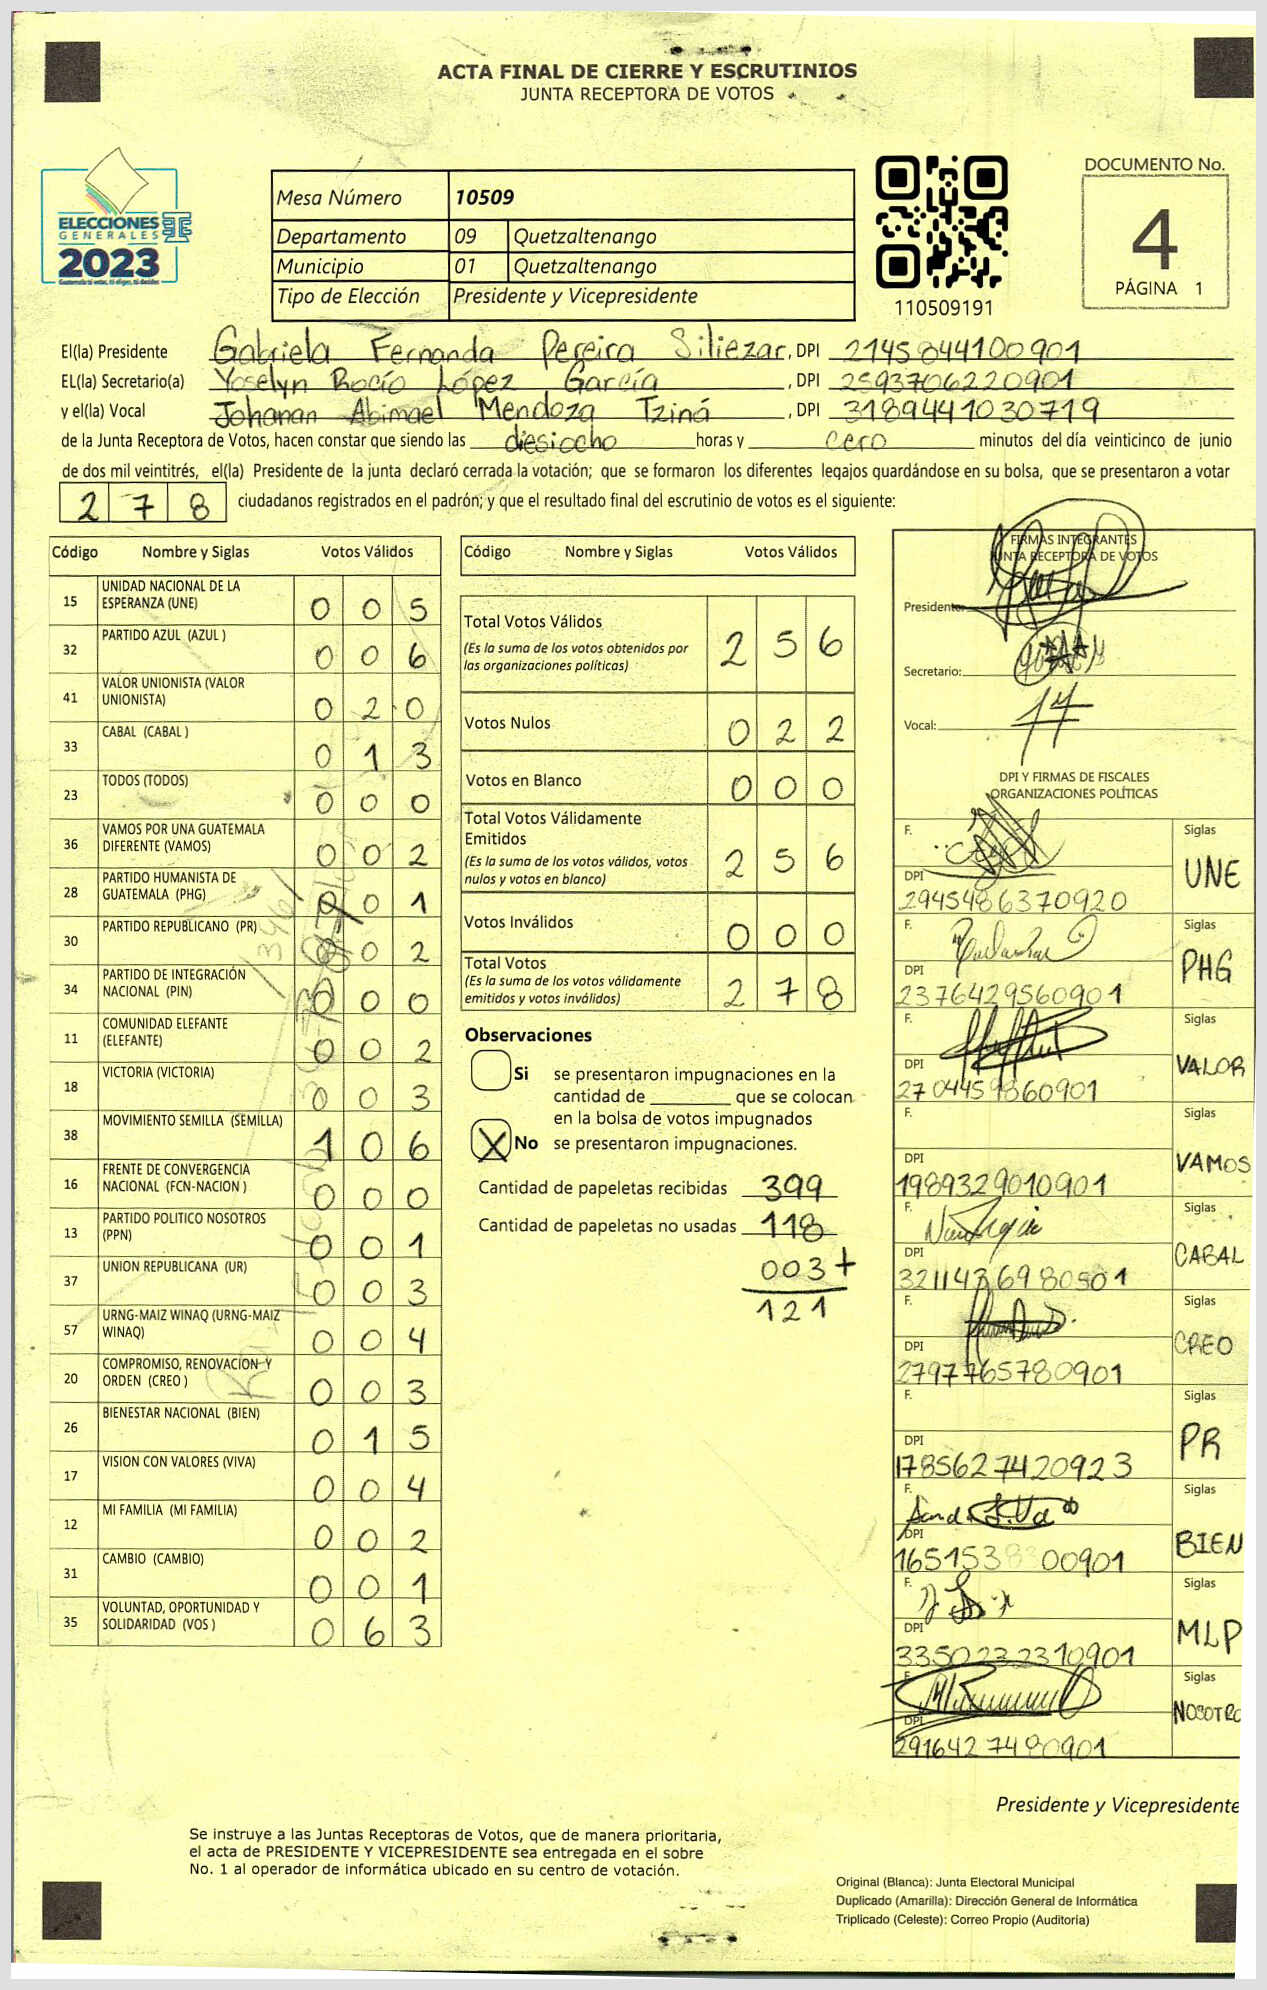 ACTA FINAL DE CIERRE Y ESCRUTINIOS
JUNTA RECEPTORA DE VOTOS
ELECCIONES
GENERALES
2023
Mesa Número 10509
Departamento 09 Quetzaltenango
Municipio 01 Quetzaltenango
Tipo de Elección Presidente y Vicepresidente
110509191
DOCUMENTO No.
4
PÁGINA 1
El(la) Presidente Gabriela Fernanda Pereira Siliezar, DPI 2145844100901
EL(la) Secretario(a) Yoselyn Rocío López García, DPI 2593706220901
y el(la) Vocal Johanan Abimael Mendoza Tziná, DPI 3189441030719
de la Junta Receptora de Votos, hacen constar que siendo las diesiocho horas y cero minutos del día veinticinco de junio
de dos mil veintitrés, el(la) Presidente de la junta declaró cerrada la votación; que se formaron los diferentes legajos guardándose en su bolsa, que se presentaron a votar
278 ciudadanos registrados en el padrón; y que el resultado final del escrutinio de votos es el siguiente:
Código Nombre y Siglas Votos Válidos
15 UNIDAD NACIONAL DE LA ESPERANZA (UNE) 0 0 5
32 PARTIDO AZUL (AZUL ) 0 0 6
41 VALOR UNIONISTA (VALOR UNIONISTA) 0 2 0
33 CABAL (CABAL ) 0 1 3
23 TODOS (TODOS) 0 0 0
36 VAMOS POR UNA GUATEMALA DIFERENTE (VAMOS) 0 0 2
28 PARTIDO HUMANISTA DE GUATEMALA (PHG) 0 0 1
30 PARTIDO REPUBLICANO (PR) 0 0 2
34 PARTIDO DE INTEGRACIÓN NACIONAL (PIN) 0 0 0
11 COMUNIDAD ELEFANTE (ELEFANTE) 0 0 2
18 VICTORIA (VICTORIA) 0 0 3
38 MOVIMIENTO SEMILLA (SEMILLA) 1 0 6
16 FRENTE DE CONVERGENCIA NACIONAL (FCN-NACION ) 0 0 0
13 PARTIDO POLITICO NOSOTROS (PPN) 0 0 1
37 UNION REPUBLICANA (UR) 0 0 3
57 URNG-MAIZ WINAQ (URNG-MAIZ WINAQ) 0 0 4
20 COMPROMISO, RENOVACION Y ORDEN (CREO ) 0 0 3
26 BIENESTAR NACIONAL (BIEN) 0 1 5
17 VISION CON VALORES (VIVA) 0 0 4
12 MI FAMILIA (MI FAMILIA) 0 0 2
31 CAMBIO (CAMBIO) 0 0 1
35 VOLUNTAD, OPORTUNIDAD Y SOLIDARIDAD (VOS ) 0 6 3
Código Nombre y Siglas Votos Válidos
Total Votos Válidos 2 5 6
(Es la suma de los votos obtenidos por
las organizaciones políticas)
Votos Nulos 0 2 2
Votos en Blanco 0 0 0
Total Votos Válidamente
Emitidos 2 5 6
(Es la suma de los votos válidos, votos
nulos y votos en blanco)
Votos Inválidos 0 0 0
Total Votos 2 7 8
(Es la suma de los votos válidamente
emitidos y votos inválidos)
Observaciones
Si se presentaron impugnaciones en la
cantidad de ________ que se colocan
en la bolsa de votos impugnados
X No se presentaron impugnaciones.
Cantidad de papeletas recibidas 399
Cantidad de papeletas no usadas 118
003+
121
FIRMAS INTEGRANTES
JUNTA RECEPTORA DE VOTOS
Presidente:
Secretario:
Vocal:
DPI Y FIRMAS DE FISCALES
ORGANIZACIONES POLÍTICAS
F. Siglas
DPI UNE
2945486370920
F. Siglas
DPI PHG
2376429560901
F. Siglas
DPI VALOR
2704459860901
F. Siglas
DPI VAMOS
1989329010901
F. Siglas
DPI CABAL
3211436980501
F. Siglas
DPI CREO
2797765780901
F. Siglas
DPI PR
1785627420923
F. Siglas
DPI BIEN
1651538300901
F. Siglas
DPI MLP
3350232310901
F. Siglas
DPI NOSOTRO
2916427480901
Presidente y Vicepresidente
Se instruye a las Juntas Receptoras de Votos, que de manera prioritaria,
el acta de PRESIDENTE Y VICEPRESIDENTE sea entregada en el sobre
No. 1 al operador de informática ubicado en su centro de votación.
Original (Blanca): Junta Electoral Municipal
Duplicado (Amarilla): Dirección General de Informática
Triplicado (Celeste): Correo Propio (Auditoría)